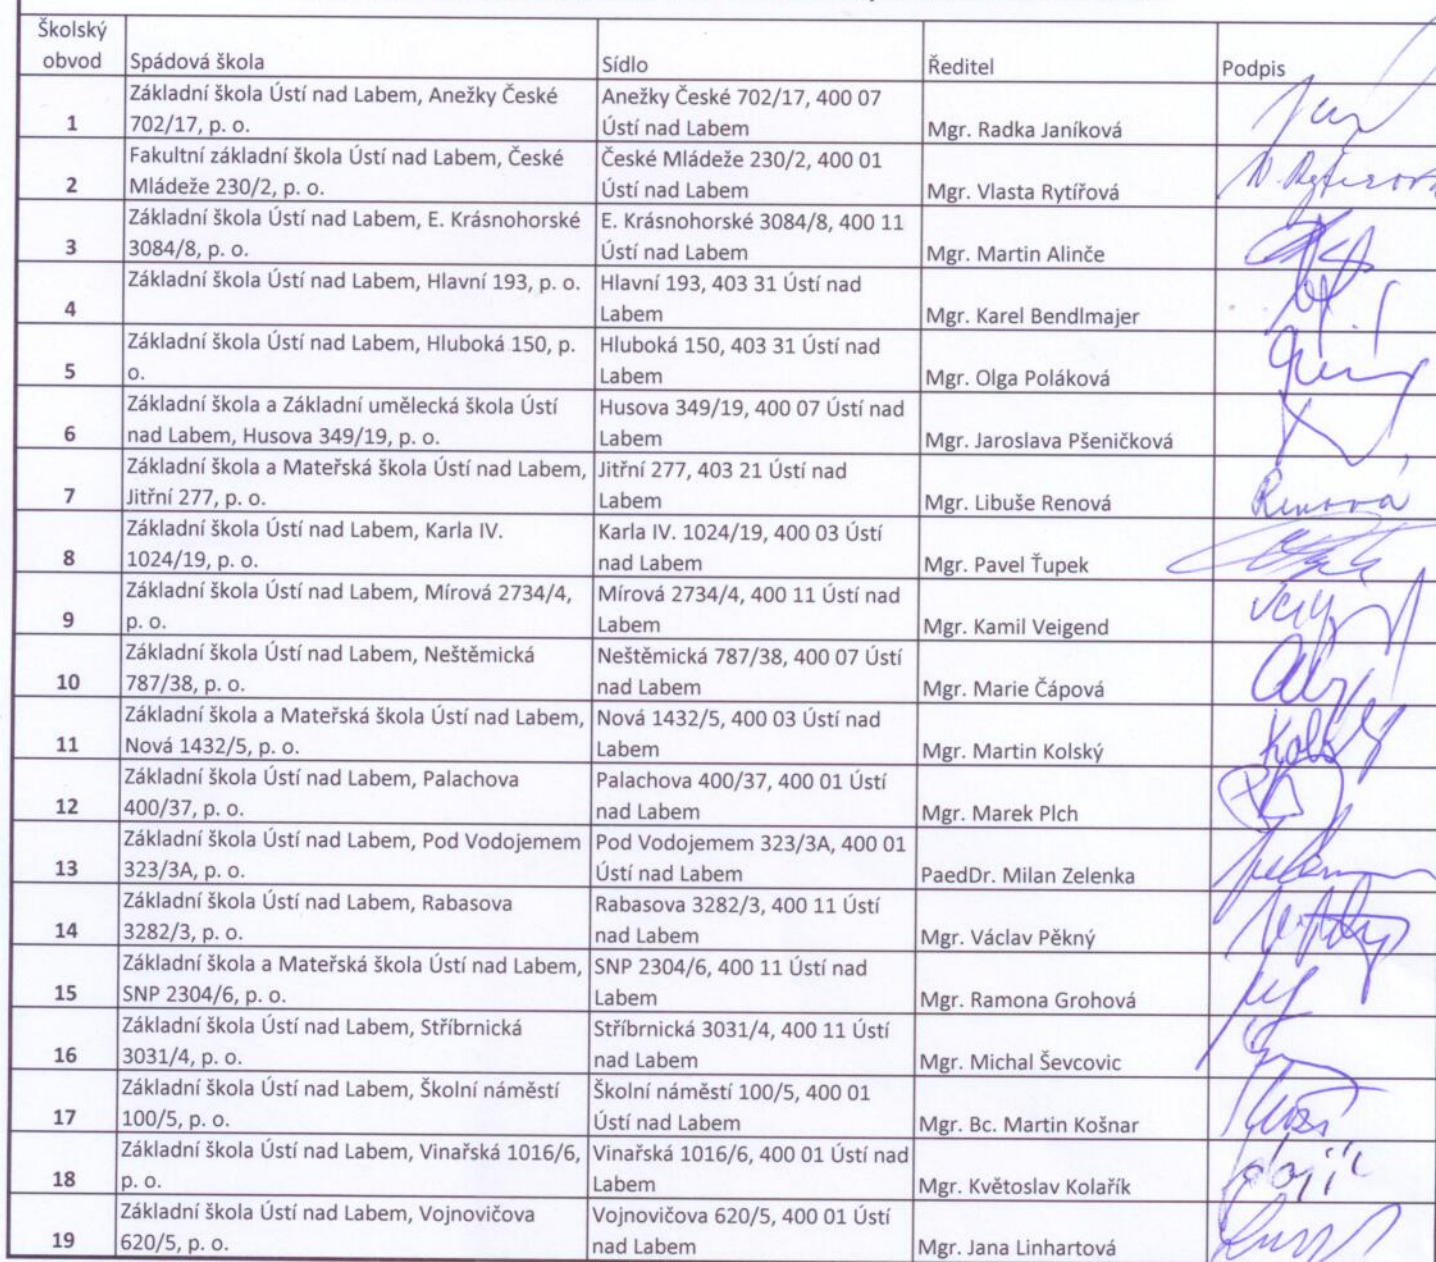 Školský
obvod Spádová škola Sídlo Ředitel Podpis
Základní škola Ústí nad Labem, Anežky České Anežky České 702/17, 400 07
1 702/17, p. o. Ústí nad Labem Mgr. Radka Janíková
Fakultní základní škola Ústí nad Labem, České České Mládeže 230/2, 400 01
2 Mládeže 230/2, p. o. Ústí nad Labem Mgr. Vlasta Rytířová
Základní škola Ústí nad Labem, E. Krásnohorské E. Krásnohorské 3084/8, 400 11
3 3084/8, p. o. Ústí nad Labem Mgr. Martin Alinče
Základní škola Ústí nad Labem, Hlavní 193, p. o. Hlavní 193, 403 31 Ústí nad
4 Labem Mgr. Karel Bendlmajer
Základní škola Ústí nad Labem, Hluboká 150, p. Hluboká 150, 403 31 Ústí nad
5 o. Labem Mgr. Olga Poláková
Základní škola a Základní umělecká škola Ústí Husova 349/19, 400 07 Ústí nad
6 nad Labem, Husova 349/19, p. o. Labem Mgr. Jaroslava Pšeničková
Základní škola a Mateřská škola Ústí nad Labem, Jitřní 277, 403 21 Ústí nad
7 Jitřní 277, p. o. Labem Mgr. Libuše Renová Renová
Základní škola Ústí nad Labem, Karla IV. Karla IV. 1024/19, 400 03 Ústí
8 1024/19, p. o. nad Labem Mgr. Pavel Ťupek
Základní škola Ústí nad Labem, Mírová 2734/4, Mírová 2734/4, 400 11 Ústí nad
9 p. o. Labem Mgr. Kamil Veigend
Základní škola Ústí nad Labem, Neštěmická Neštěmická 787/38, 400 07 Ústí
10 787/38, p. o. nad Labem Mgr. Marie Čápová
Základní škola a Mateřská škola Ústí nad Labem, Nová 1432/5, 400 03 Ústí nad
11 Nová 1432/5, p. o. Labem Mgr. Martin Kolský
Základní škola Ústí nad Labem, Palachova Palachova 400/37, 400 01 Ústí
12 400/37, p. o. nad Labem Mgr. Marek Plch
Základní škola Ústí nad Labem, Pod Vodojemem Pod Vodojemem 323/3A, 400 01
13 323/3A, p. o. Ústí nad Labem PaedDr. Milan Zelenka
Základní škola Ústí nad Labem, Rabasova Rabasova 3282/3, 400 11 Ústí
14 3282/3, p. o. nad Labem Mgr. Václav Pěkný
Základní škola a Mateřská škola Ústí nad Labem, SNP 2304/6, 400 11 Ústí nad
15 SNP 2304/6, p. o. Labem Mgr. Ramona Grohová
Základní škola Ústí nad Labem, Stříbrnická Stříbrnická 3031/4, 400 11 Ústí
16 3031/4, p. o. nad Labem Mgr. Michal Ševcovic
Základní škola Ústí nad Labem, Školní náměstí Školní náměstí 100/5, 400 01
17 100/5, p. o. Ústí nad Labem Mgr. Bc. Martin Košnar
Základní škola Ústí nad Labem, Vinařská 1016/6, Vinařská 1016/6, 400 01 Ústí nad
18 p. o. Labem Mgr. Květoslav Kolařík
Základní škola Ústí nad Labem, Vojnovičova Vojnovičova 620/5, 400 01 Ústí
19 620/5, p. o. nad Labem Mgr. Jana Linhartová